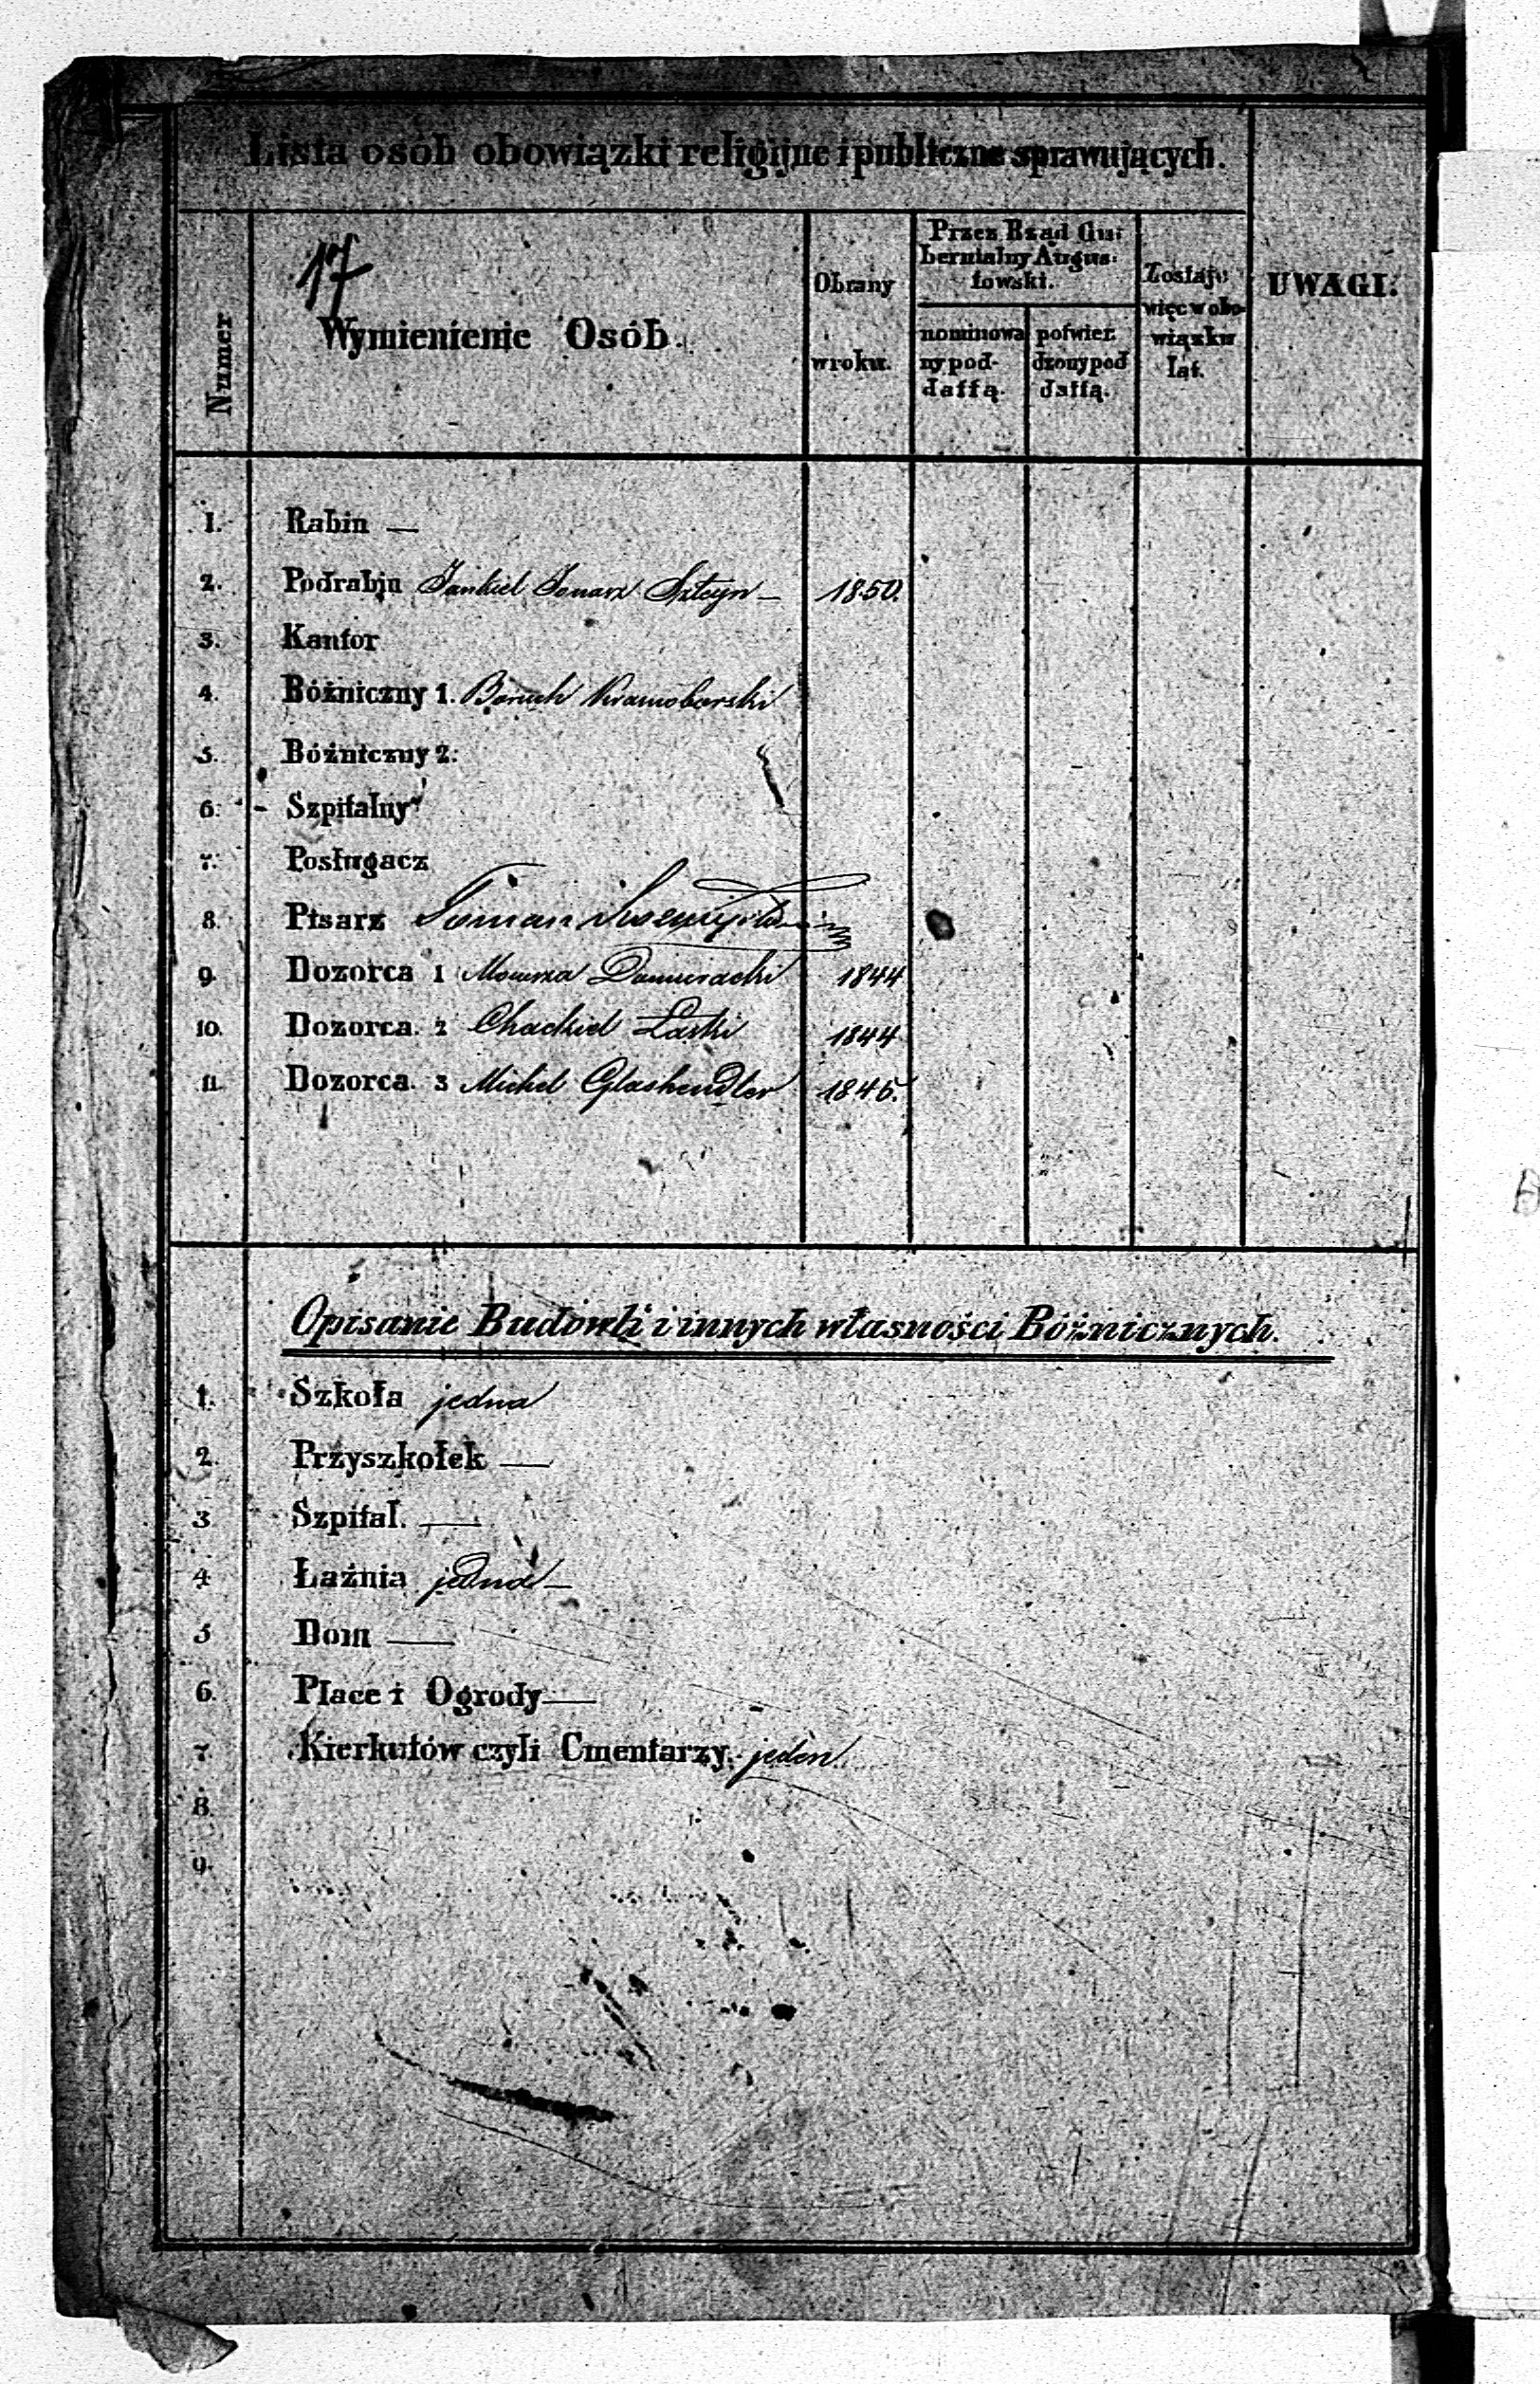 Lista osób obowiązki religijne i publiczne sprawujących.
17
Numer
Wymienienie Osób.
Obrany w roku.
Przez Rząd Gubernialny Augustowski.
nominowany pod dattą.
potwierdzony pod dattą.
Zostaje więc w obowiązku lat.
UWAGI.
1. Rabin —
2. Podrabin Jankiel Sztejn — 1850.
3. Kantor
4. Bóżniczny 1. Boruch
5. Bóżniczny 2.
6. - Szpitalny
7. Posługacz
8. Pisarz
9. Dozorca 1 1844
10. Dozorca. 2 Chackiel Łaski 1844
11. Dozorca. 3 Michel Glashendler 1845.
Opisanie Budowli i innych własności Bóżnicznych.
1. Szkoła jedna
2. Przyszkołek —
3 Szpital. —
4 Łaźnia jedna —
5 Dom —
6. Place i Ogrody —
7. Kierkutów czyli Cmentarzy. jeden.
8.
9.